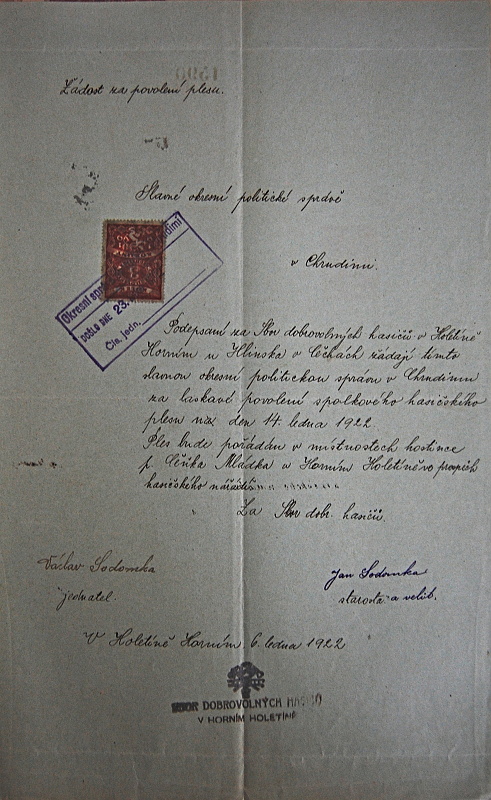 Žádost za povolení plesu.
Slavné okresní politické správě
v Chrudimi.
Okresní
DOŠLO DNE 23.
Čís. jedn.
Podepsaní za Sbor dobrovolných hasičů v Holetíně
Horním u Hlinska v Čechách žádají tímto
slavnou okresní politickou správu v Chrudimi
za laskavé povolení spolkového hasičského
plesu na den 14. ledna 1922.
Ples bude pořádán v místnostech hostince
p. Čeňka Mládka v Horním Holetíně ve prospěch
hasičského nářadí
Za Sbor dobr. hasičů.
Václav Sodomka
jednatel.
Jan Sodomka
starosta a velit.
V Holetíně Horním 6. ledna 1922
SBOR DOBROVOLNÝCH HASIČŮ
V HORNÍM HOLETÍNĚ